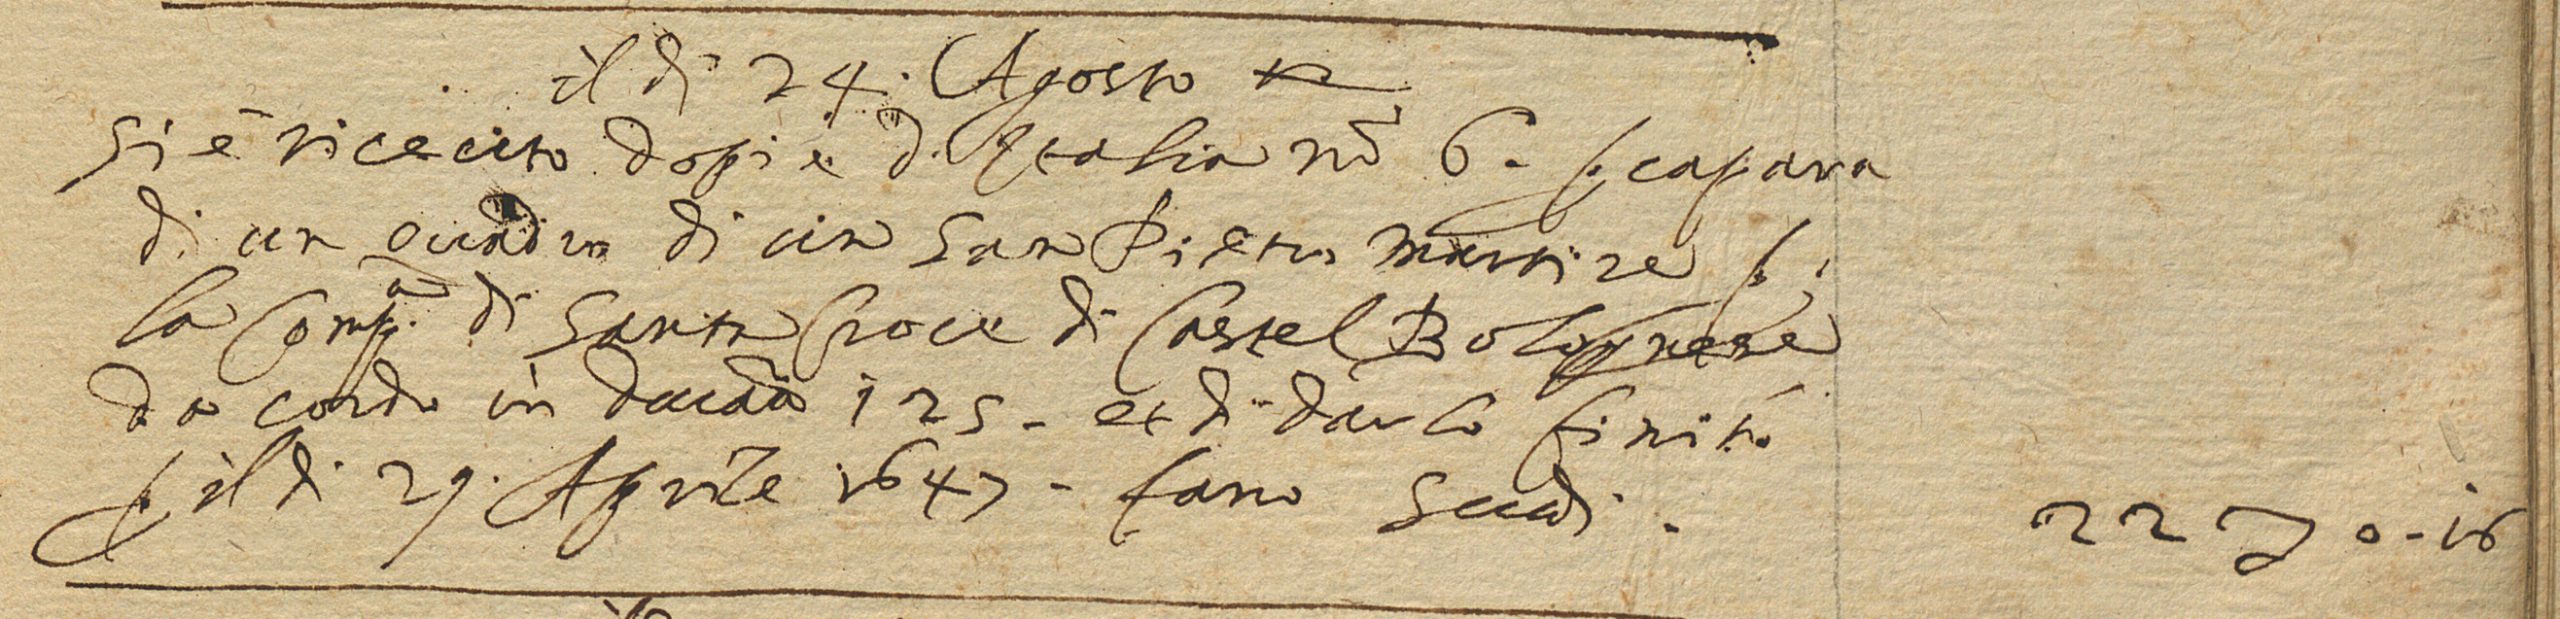 il di 24. Agosto
Si è riceuto dopie d. Italia nů 6. p. capara
di un quadro di un San Pietro martire p.
la Comp.a di Santa Croce di Castel Bolognese
da cordo in ducatō 125 - et di darlo finito
p. il di 29. Aprile 1647 - fano Scudi - 22 0-16